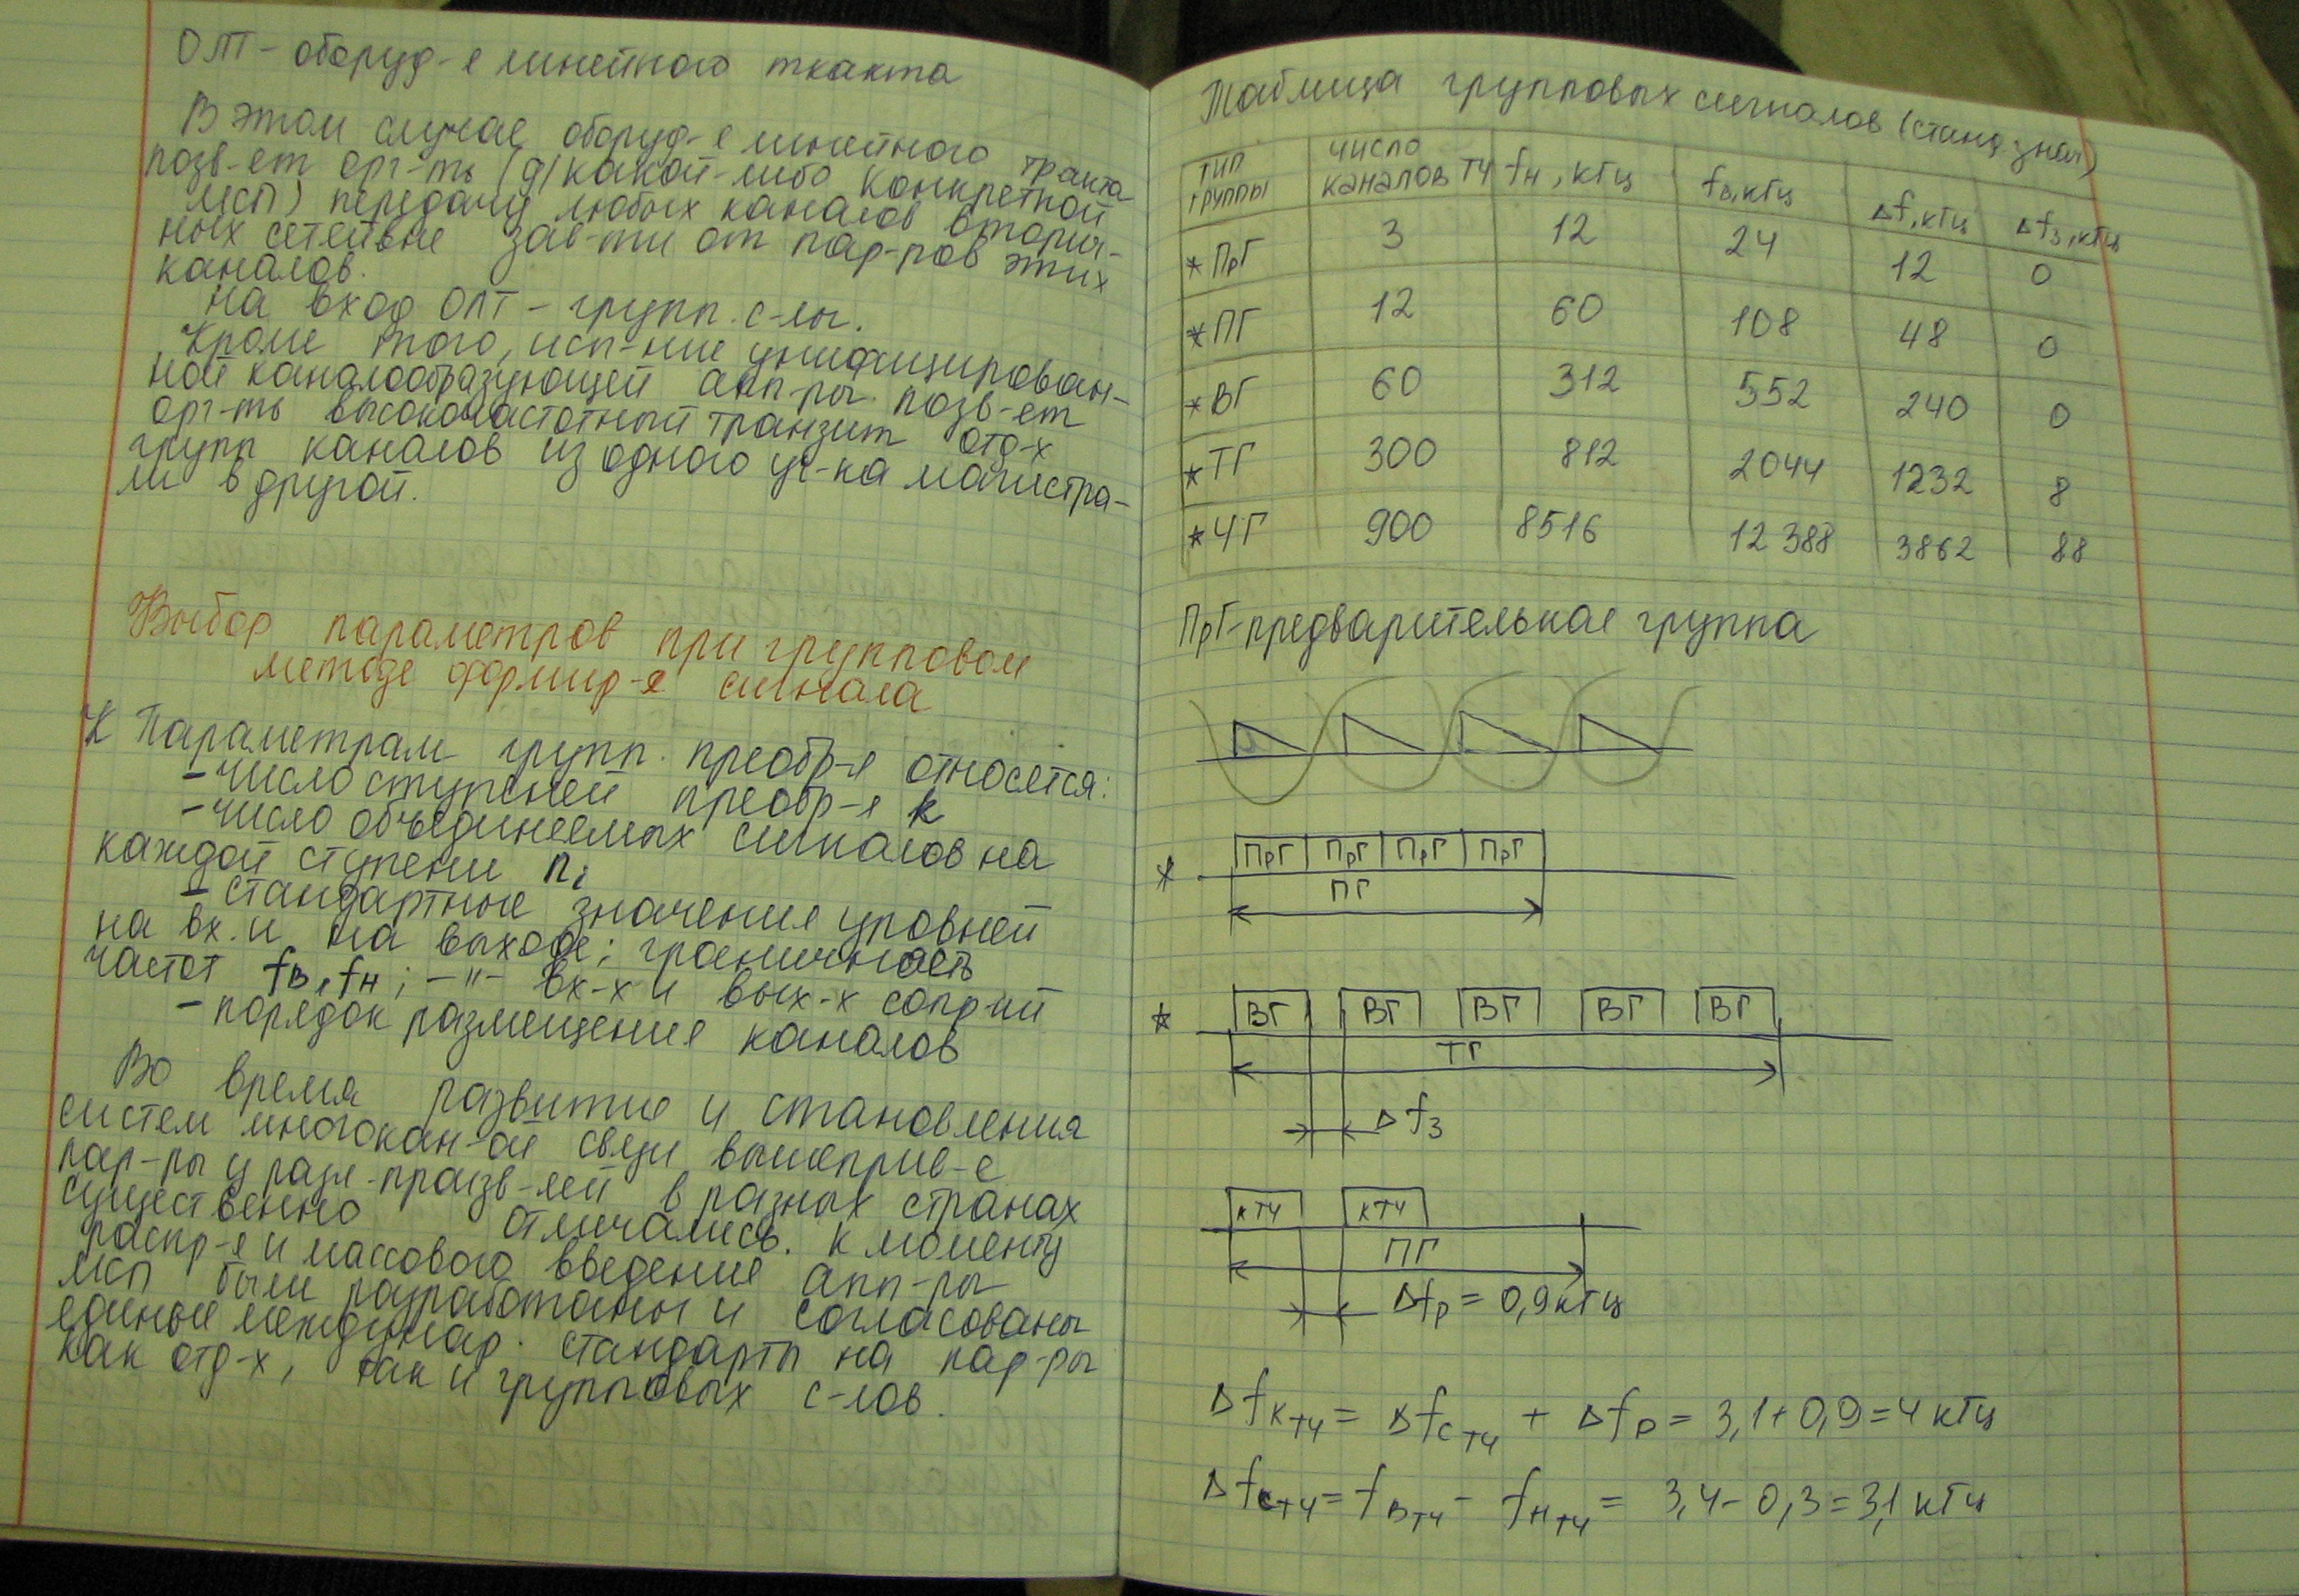 ОЛТ - оборуд-е линейного ткакта
В этом случае оборуд-е линейного тракта
позв-ет орг-ть (д/какой-либо конкретной
МСП) передачу любых каналов вторич-
ных сетей вне зав-ти от пар-ров этих
каналов.
На вход ОЛТ - групп. с-лы.
Кроме того, исп-ние унифицирован-
ной каналообразующей апп-ры позв-ет
орг-ть высокочастотный транзит отд-х
групп каналов из одного уч-ка магистра-
ли в другой.
Выбор параметров при групповом
методе формир-я сигнала
К Параметрам групп. преобр-я относятся:
- число ступеней преобр-я k
- число объединяемых сигналов на
каждой ступени ni
- стандартные значения уровней
на вх. и на выходе; граничность
частот fв, fн; -"- вх-х и вых-х сопр-ий
- порядок размещения каналов
Во время развития и становления
систем многокан-ой связи вышеприв-е
пар-ры у разл. произв-лей в разных странах
существенно отличались. К моменту
распр-я и массового введения апп-ры
МСП были разработаны и согласованы
единые междунар. стандарты на пар-ры
как отд-х, так и групповых с-лов.
Таблица групповых сигналов (станд. знач)
тип группы число каналов ТЧ fн, кГц fв, кГц Δf, кГц Δfз, кГц
* ПрГ 3 12 24 12 0
* ПГ 12 60 108 48 0
* ВГ 60 312 552 240 0
* ТГ 300 812 2044 1232 8
* ЧГ 900 8516 12 388 3862 88
ПрГ - предварительная группа
* ПрГ ПрГ ПрГ ПрГ
ПГ
* ВГ ВГ ВГ ВГ ВГ
ТГ
Δfз
КТЧ КТЧ
ПГ
Δfр = 0,9 кГц
ΔfКТЧ = ΔfСТЧ + Δfр = 3,1 + 0,9 = 4 кГц
ΔfСТЧ = fВТЧ - fНТЧ = 3,4 - 0,3 = 3,1 кГц